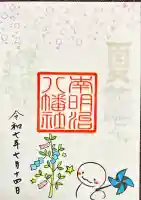 南明治
八幡社
令和七年七月十四日
夏